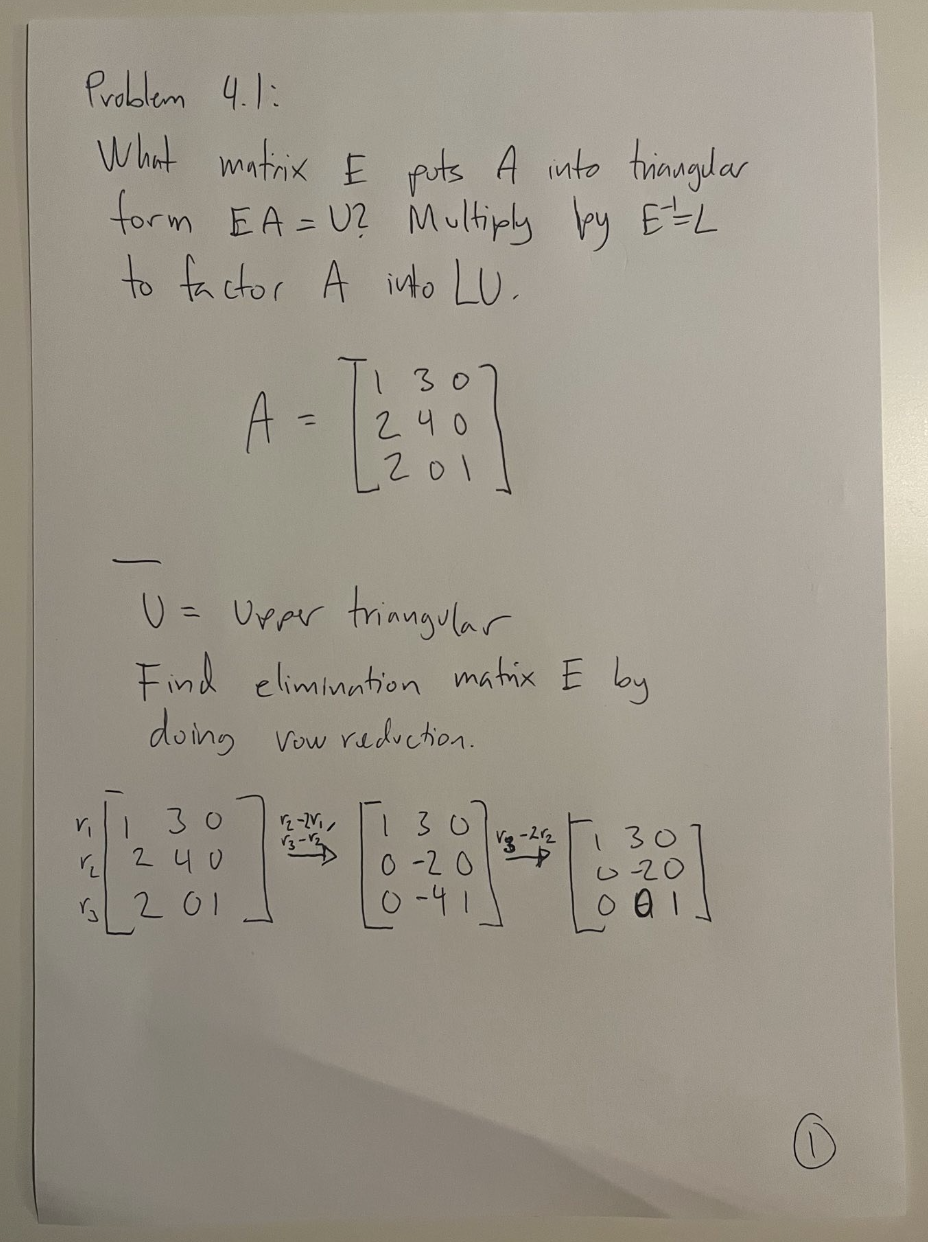 Problem 4.1:
What matrix E puts A into triangular
form EA = U? Multiply by E⁻¹=L
to factor A into LU.
A = [1 3 0
2 4 0
2 0 1]
U = Upper triangular
Find elimination matrix E by
doing row reduction.
r₁ [1 3 0 r₂-2r₁, [1 3 0 r₃-2r₂ [1 3 0
r₂ 2 4 0 r₃-r₂ → 0 -2 0 → 0 -2 0
r₃ 2 0 1] 0 -4 1] 0 0 1]
1